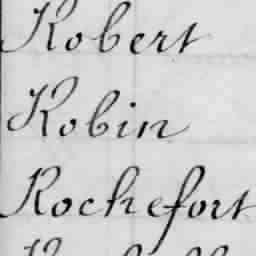 Robert
Robin
Rochefort